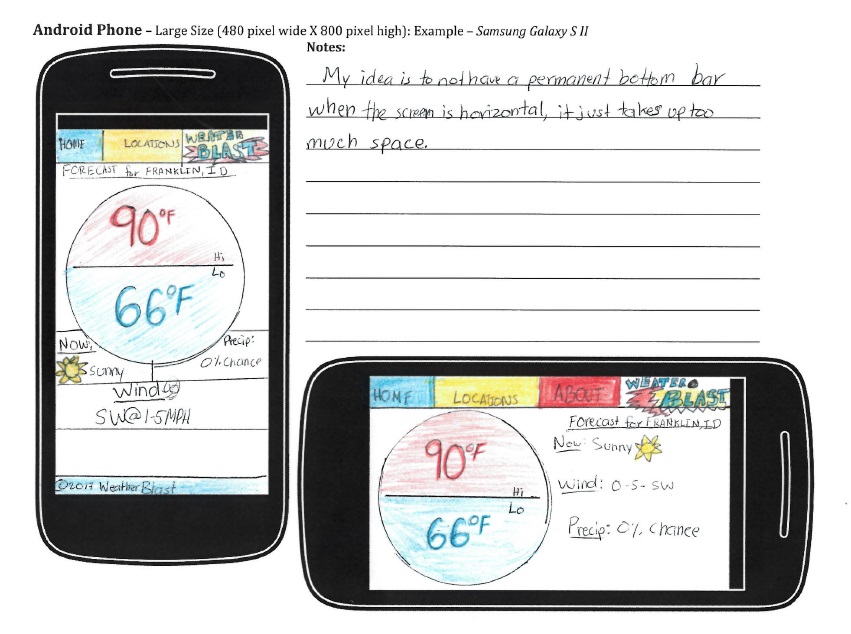 Android Phone – Large Size (480 pixel wide X 800 pixel high): Example – Samsung Galaxy S II
Notes:
My idea is to not have a permanent bottom bar
when the screen is horizontal, it just takes up too
much space.
HOME LOCATIONS WEATER BLAST
FORECAST for FRANKLIN, ID
90°F
Hi
Lo
66°F
Now:
Sunny
Precip:
0% Chance
Wind
SW@1-5MPH
©2017 WeatherBlast
HOME LOCATIONS ABOUT WEATER BLAST
Forecast for FRANKLIN, ID
90°F
Hi
Lo
66°F
Now: Sunny
Wind: 0-5- SW
Precip: 0% Chance